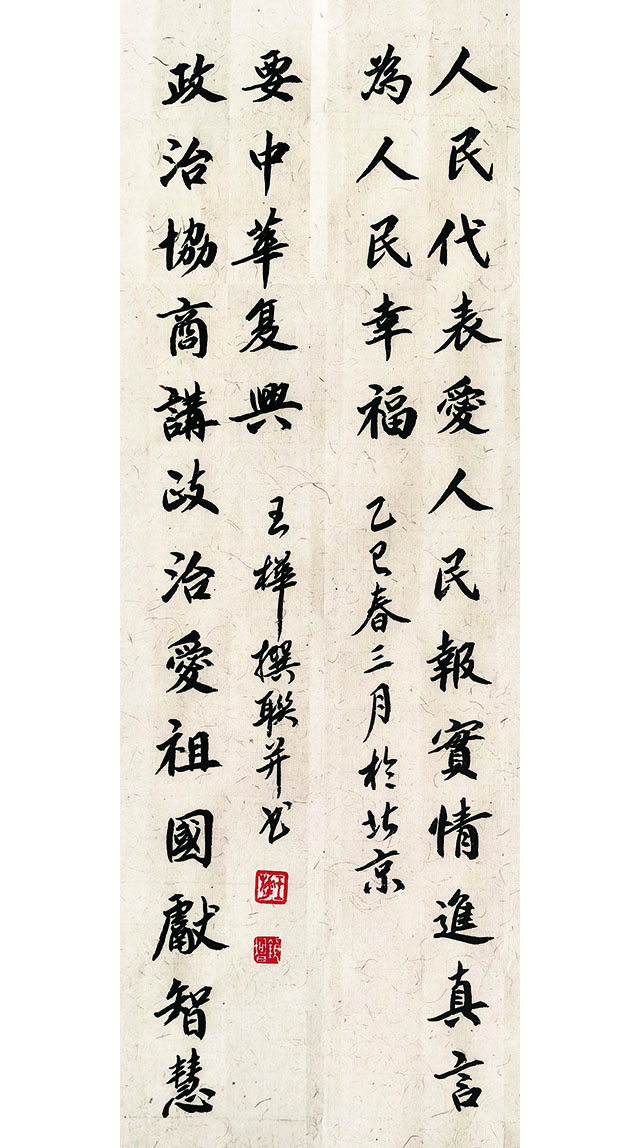 人民代表愛人民報實情進真言
為人民幸福
乙巳春三月於北京
政治協商講政治愛祖國獻智慧
要中華复興
王樺撰聯并书